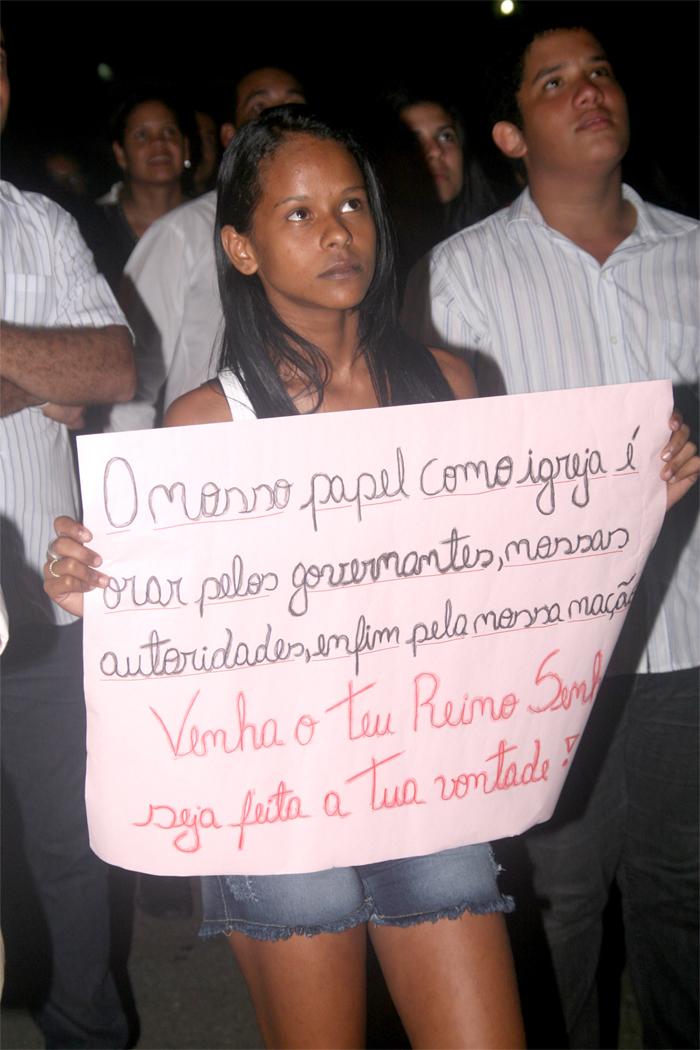 O nosso papel como igreja é
orar pelos governantes, nossas
autoridades, enfim pela nossa nação
Venha o teu Reino Senh
seja feita a tua vontade!